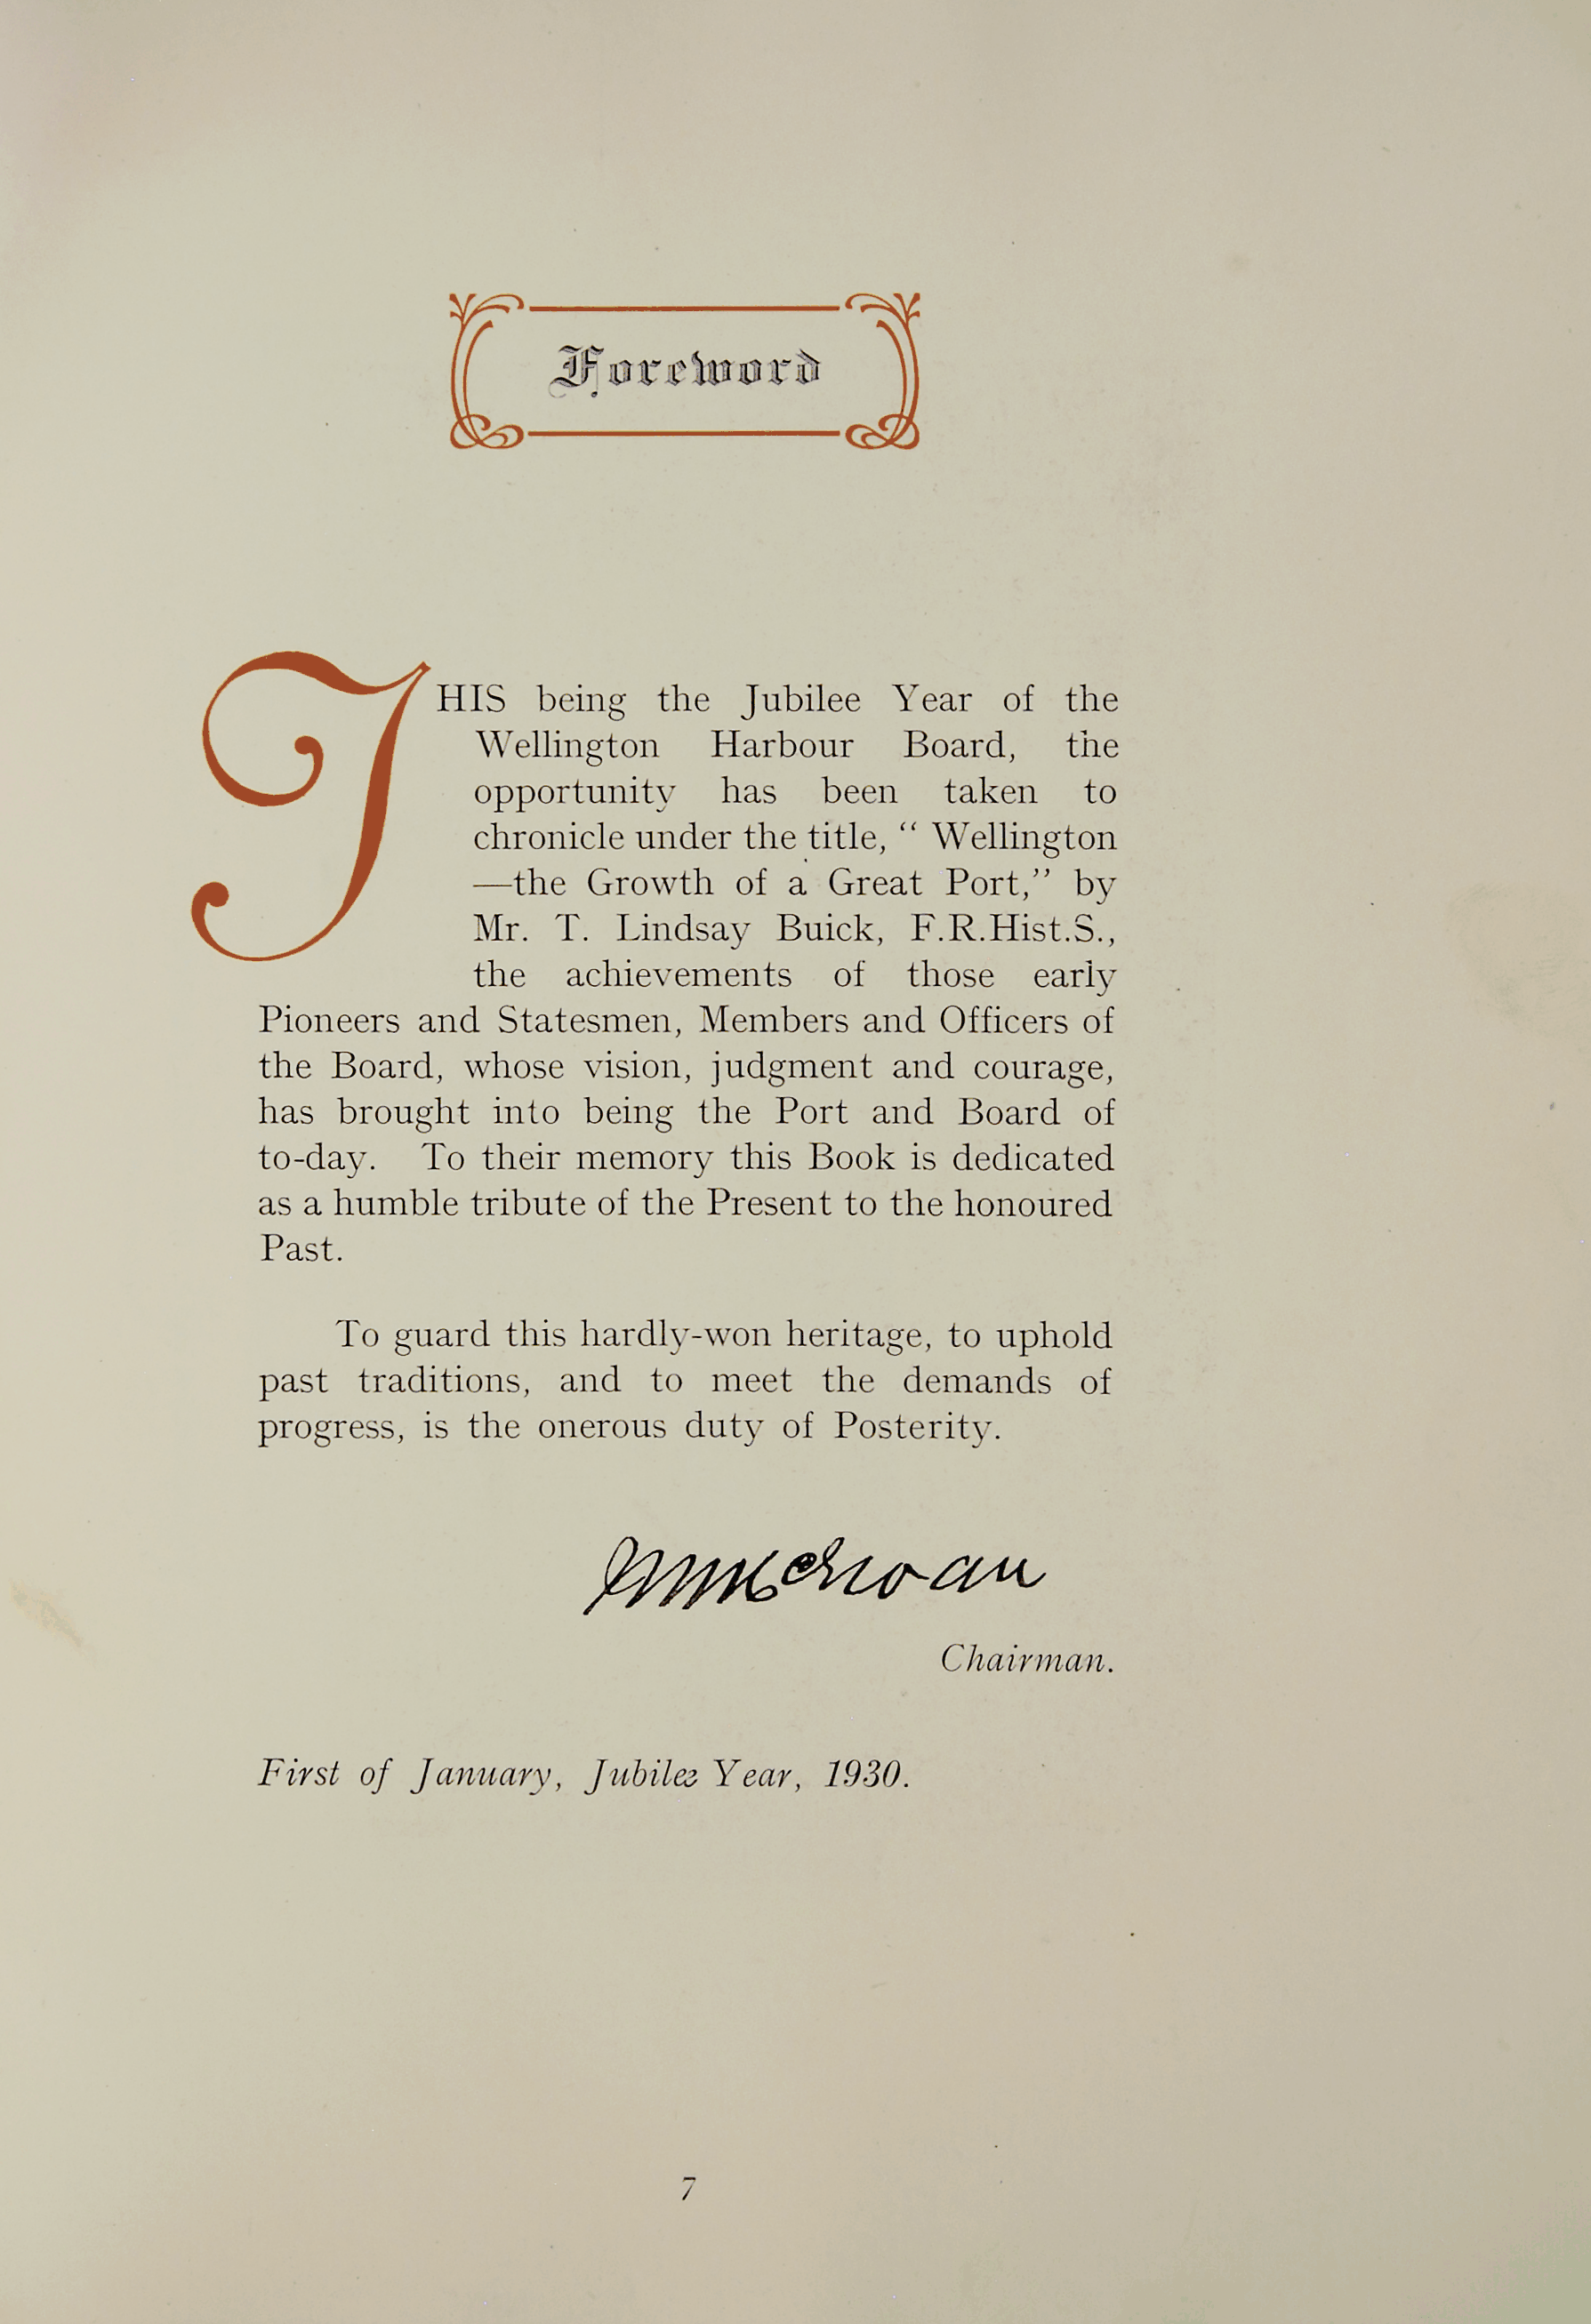 Foreword
THIS being the Jubilee Year of the
Wellington Harbour Board, the
opportunity has been taken to
chronicle under the title, “ Wellington
—the Growth of a Great Port,” by
Mr. T. Lindsay Buick, F.R.Hist.S.,
the achievements of those early
Pioneers and Statesmen, Members and Officers of
the Board, whose vision, judgment and courage,
has brought into being the Port and Board of
to-day. To their memory this Book is dedicated
as a humble tribute of the Present to the honoured
Past.
To guard this hardly-won heritage, to uphold
past traditions, and to meet the demands of
progress, is the onerous duty of Posterity.
Chairman.
First of January, Jubilee Year, 1930.
7